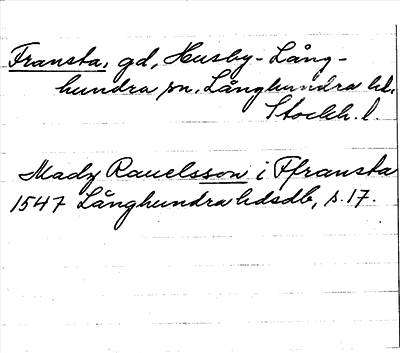 Fransta, gd, Husby-Lång-
hundra sn, Långhundra hd,
Stockh. l.
Mady Rauelsson i Ffransta
1547 Långhundra hdsdb, s. 17.